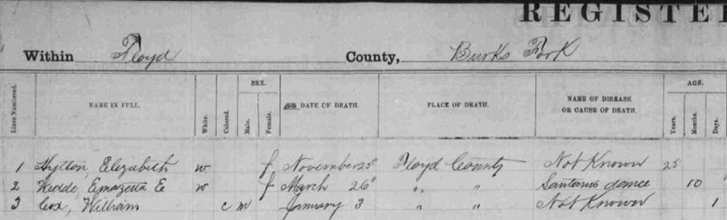 REGISTE
Within Floyd County, Burks Fork
SEX. AGE.
Lines Numbered. NAME IN FULL. White. Colored. Male. Female. DATE OF DEATH. PLACE OF DEATH. NAME OF DISEASE OR CAUSE OF DEATH. Years. Months. Days.
1 Hylton Elizabeth w f November 25" Floyd County Not Known 25
2 Weddle, Emazetta E w f March 26" " " dance 10 "
3 Cox, William c m January 3 " " Not Known 1